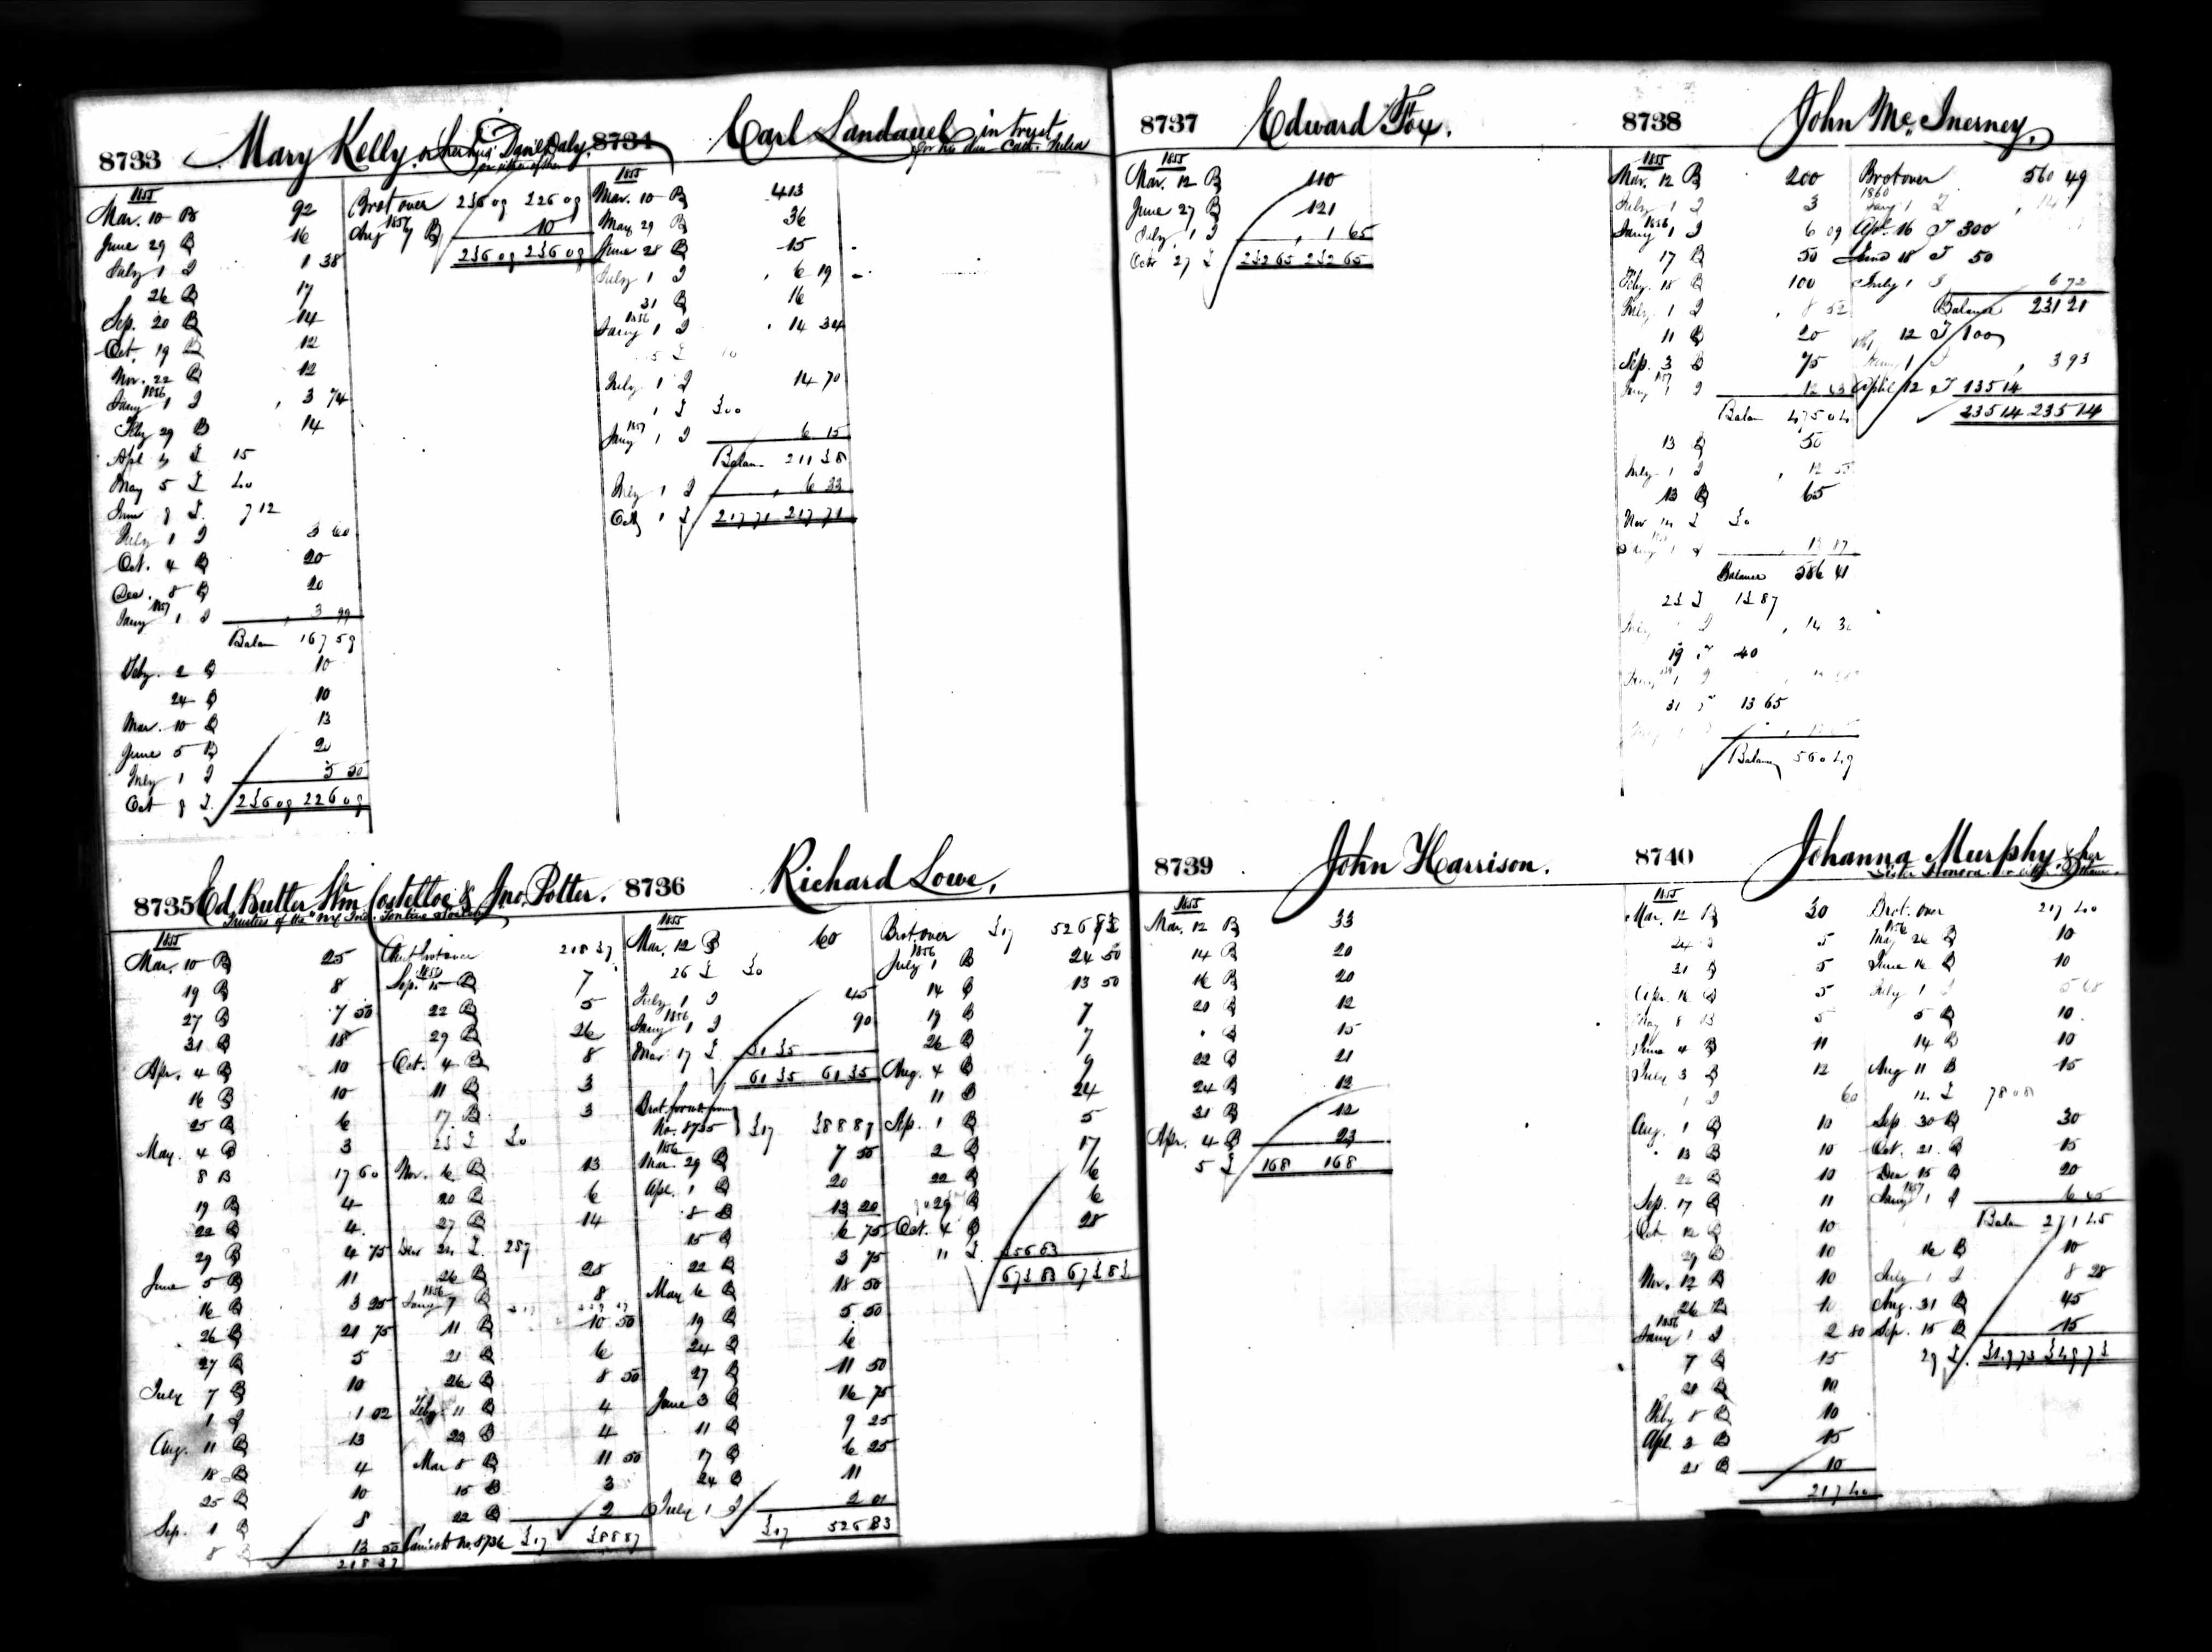 8733 Mary Kelly, or her Daniel Daly,
or either of them
1855
Mar. 10 B 92
June 29 B 16
July 1 I 1 38
26 B 17
Sep. 20 B 14
Oct. 19 B 12
Nov. 22 B 12
1856
Jany 1 I 3 74
Feby 29 B 14
Apl 4 15
May 5
June 9 7 12
July 1 I 3 60
Oct. 4 B 20
Dec. 8 B 20
1857
Jany 1 I 3 99
Balan 167 59
Feby. 2 B 10
24 B 10
Mar. 10 B 13
June 5 B 20
July 1 I 5 50
Oct 9 226 09
Brot over 226 09
1857
Aug 7 B 10
8734 Carl Landauel in trust
for his
1855
Mar. 10 B 413
May 29 B 36
June 28 B 15
July 1 I 6 19
31 B 16
1856
Jany 1 I 14 34
July 1 I 14 70
1857
Jany 1 I 6 15
Balan 211 38
July 1 I 6 33
Oct 1 217 71 217 71
8735 Ed. Butler Wm Costelloe & Jno. Potter.
Trustees of the
1855
Mar. 10 B 25
19 B 8
27 B 7 50
31 B 18
Apr. 4 B 10
16 B 10
25 B 6
May. 4 B 3
8 B 17 60
19 B 4
22 B 4
29 B 4 75
June 5 B 11
16 B 3 25
26 B 21 75
27 B 5
July 7 B 10
1 I 1 02
Aug. 11 B 13
18 B 4
25 B 10
Sep. 1 B 8
8 B 13 50
218 37
Amt brot over 218 37
1855
Sep. 15 B 7
22 B 5
29 B 26
Oct. 4 B 8
11 B 3
17 B 3
Nov. 6 B 13
20 B 6
27 B 14
Dec 24 287
26 B 28
1856
Jany 7 B 8
11 B 10 50
21 B 6
26 B 8 50
Feby. 11 B 4
22 B 4
Mar 8 B 11 50
15 B 3
22 B 2
Carried to No. 8736 317 388 87
8736 Richard Lowe,
1855
Mar. 12 B 60
July 1 I 45
1856
Jany 1 I 90
Mar. 17 31 35
61 35 61 35
Brot forwd from
No. 8735 317 388 87
1856
Mar. 29 B 7 50
Apl. 1 B 20
8 B 13 20
15 B 6 75
22 B 3 75
May 6 B 18 50
19 B 5 50
24 B 6
27 B 11 50
June 3 B 16 75
11 B 9 25
17 B 6 25
24 B 11
July 1 I 2 01
317 526 83
Brot. over 317 526 83
1856
July 1 B 24 50
14 B 13 50
19 B 7
26 B 7
Aug. 4 B 9
11 B 24
Sep. 1 B 5
2 B 17
22 B 6
29 B 6
Oct. 4 B 28
11 356 83
673 83 673 83
8737 Edward Fox.
1855
Mar. 12 B 110
June 27 B 121
July 1 I 1 65
Octr 27 232 65 232 65
8738 John Mc. Inerney,
1855
Mar. 12 B 200
July 1 I 3
1856
Jany 1 I 6 09
17 B 50
Feby. 18 B 100
July 1 I 8 52
11 B 20
Sep. 3 B 75
1857
Jany 1 I 12 43
Balan 475 04
13 B 50
July 1 I
13 B 65
Nov 30
Jany 1 I
Balance 586 41
23 13 87
July 1 I
19 40
31 13 65
Balance 560 49
Brot over 560 49
1860
Jany 1 I
Apl. 16 300
June 18 50
July 1 I 6 72
Balance 231 21
12 100
Jany 1 I 3 93
April 12 135 14
235 14 235 14
8739 John Harrison.
1855
Mar. 12 B 33
14 B 20
16 B 20
20 B 12
" B 15
22 B 21
24 B 12
31 B 12
Apr. 4 B 23
5 168 168
8740 Johanna Murphy & her
Sister Honora or either of them.
1855
Mar. 12 B 30
24 B 5
21 B 5
Apr. 16 B 5
May 8 B 5
June 4 B 11
July 3 B 12
1 I 60
Aug. 1 B 10
13 B 10
22 B 10
Sep. 17 B 11
Oct. 12 B 10
29 B 10
Nov. 12 B 10
26 B 10
1856
Jany 1 I 2 80
7 B 15
21 B 10
Feby 8 B 10
Apl. 2 B 15
21 B 10
217 40
Brot. over 217 40
1856
May 26 B 10
June 16 B 10
July 1 I
5 B 10
14 B 10
Aug 11 B 15
12 78 08
Sep. 30 B 30
Oct. 21 B 15
Dec 15 B 20
1857
Jany 1 I 6 45
Balan 271 45
16 B 10
July 1 I 8 28
Aug. 31 B 45
Sep. 15 B 15
29 349 73 349 73